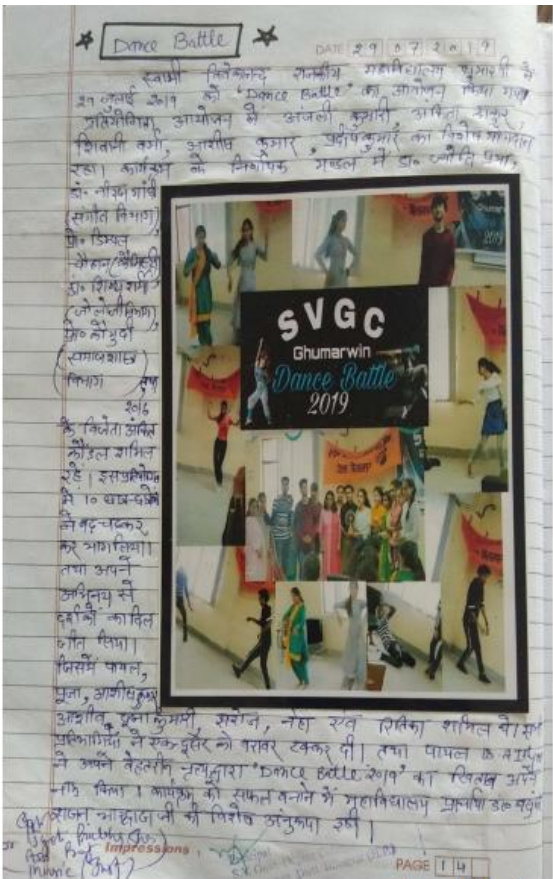 Dance Battle
DATE 29 07 2019
स्वामी विवेकानन्द राजकीय महाविद्यालय घुमारवीं में
29 जुलाई 2019 को 'Dance Battle' का आयोजन किया गया
प्रतियोगिता आयोजन में अंजली कुमारी, अंकिता ठाकुर,
शिवानी वर्मा, आशीष कुमार, प्रदीप कुमार का विशेष योगदान
रहा। कार्यक्रम के निर्णायक मण्डल में डॉ० ज्योति प्रभा,
डॉ०
(संगीत विभाग)
प्रो० डिम्पल
डॉ०
प्रो० कौमुदी
(समाजशास्त्र
विभाग) तथा
2016
के विजेता अंकित
कौंडल शामिल
रहे। इस
में 10
ने बढ़-चढ़कर
कर भाग लिया।
तथा अपने
अभिनय से
दर्शकों का दिल
जीत लिया।
जिसमें पायल,
पूजा, आशीष कुमार
आशीष, पूजा कुमारी, सरोज, नेहा एवं रितिका शामिल थे। सभी
प्रतिभागियों ने एक दूसरे को बराबर टक्कर दी। तथा पायल
ने अपने बेहतरीन नृत्य द्वारा 'Dance Battle 2019' का खिताब अपने
नाम किया। कार्यक्रम को सफल बनाने में महाविद्यालय प्राचार्य
जी की विशेष अनुकंपा रही।
SVGC
Ghumarwin
Dance Battle
2019
Impressions :
PAGE 14